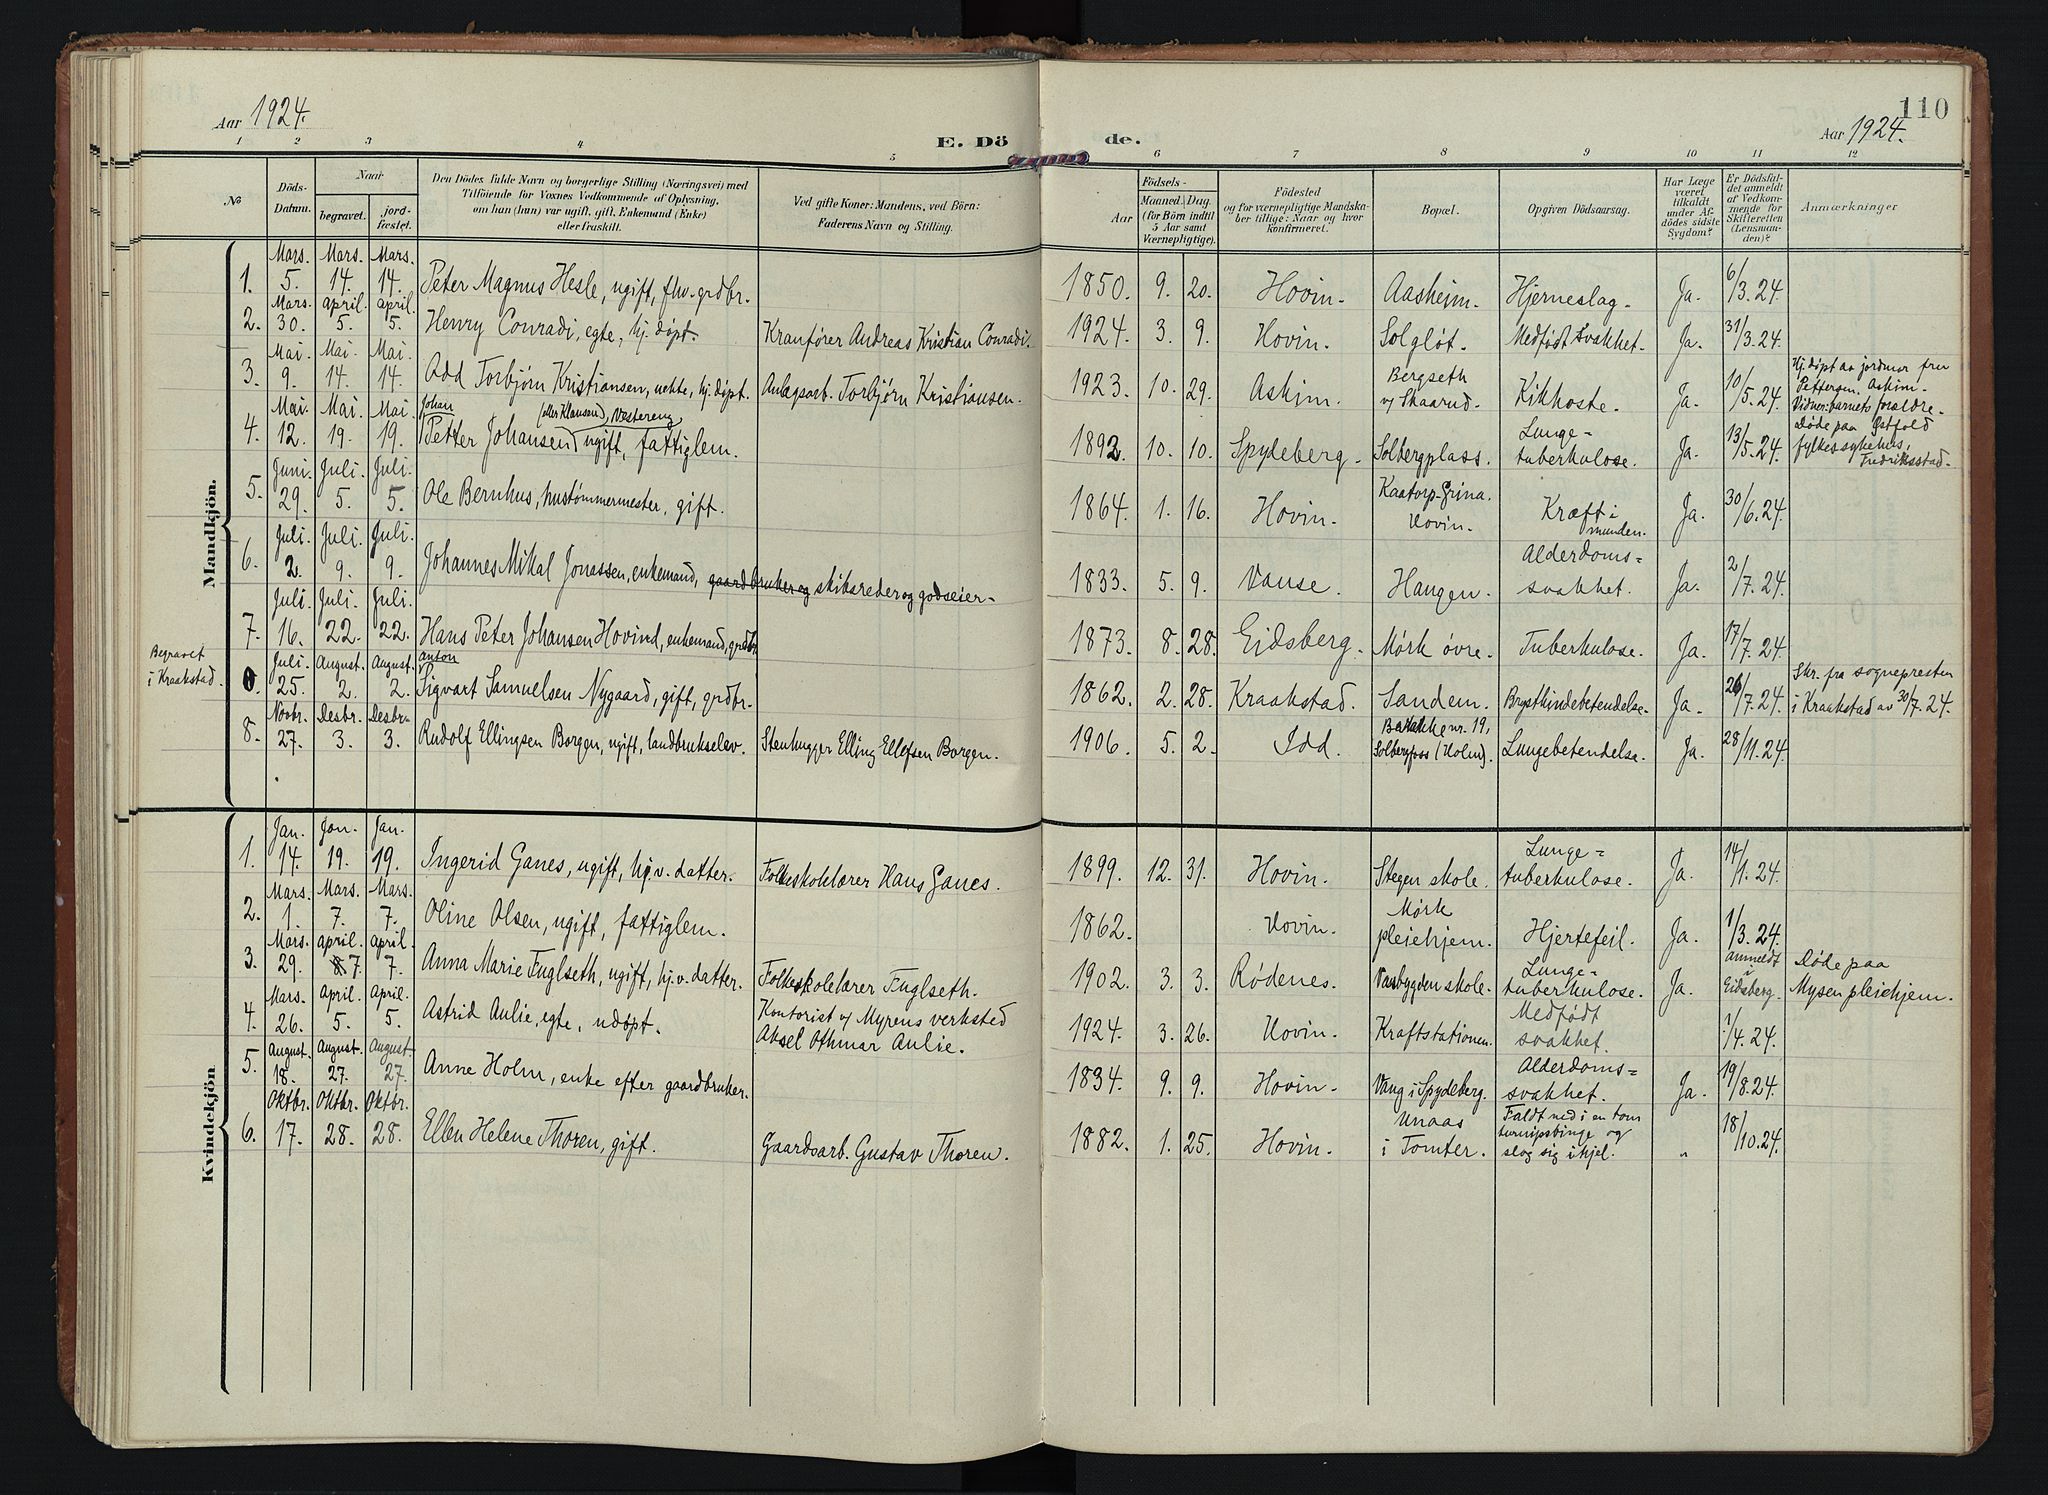 Aar 1924.
E. Dö
de.
110
Aar 1924.
1 2 3 4 5 6 7 8 9 10 11 12
No
Döds-Datum.
Naar
begravet.
jord-fæstet.
Den Dödes fulde Navn og borgerlige Stilling (Næringsvei) med
Tilföiende for Voxnes Vedkommende af Oplysning,
om han (hun) var ugift, gift, Enkemand (Enke)
eller fraskilt.
Ved gifte Koner: Mandens, ved Börn:
Faderens Navn og Stilling.
Födsels-
Aar
Maaned. Dag.
(for Börn indtil
5 Aar samt
Værnepligtige).
Födested
og for værnepligtige Mandska-
ber tillige: Naar og hvor
konfirmeret.
Bopæl.
Opgiven Dödsaarsag.
Har Læge
været
tilkaldt
under Af-
dödes sidste
Sygdom?
Er Dödsfal-
det anmeldt
af Vedkom-
mende for
Skifteretten
(Lensman-
den)?
Anmærkninger
Mandkjön.
1. Mars. 5. Mars. 14. Mars. 14. Peter Magnus Hesle, ugift, fhv. grdbr. 1850. 9. 20. Hovin. Aasheim. Hjerneslag. Ja. 6/3.24.
2. Mars. 30. april. 5. april. 5. Henry Conradi, egte, hj. døpt. Kranfører Andreas Kristian Conradi. 1924. 3. 9. Hovin. Solgløt. Medfødt svakhet. Ja. 31/3.24.
3. Mai. 9. Mai. 14. Mai. 14. Odd Torbjørn Kristiansen, uekte, hj. døpt. Anlagsarb. Torbjørn Kristiansen. 1923. 10. 29. Askim. Bergseth v/ Skaarud. Kikhoste. Ja. 10/5.24. Hj. døpt av jordmor fru
Pettersen Askim.
Vidner: barnets forældre.
4. Mai. 12. Mai. 19. Mai. 19. Johan Petter Johansen (eller Klausen), Vestereng ugift, fattiglem. 1892. 10. 10. Spydeberg. Solbergplass. Lunge=
tuberkulose. Ja. 13/5.24. Døde paa Østfold
fylkessykehus,
Fredriksstad.
5. Juni 29. Juli. 5. Juli. 5. Ole Bernhus, hustømmermester, gift. 1864. 1. 16. Hovin. Kaatorp-Grina.
Hovin. Kræft i
munden. Ja. 30/6.24.
6. Juli. 2. Juli. 9. Juli. 9. Johannes Mikal Jonassen, enkemand, gaardbruker og skibsreder og godseier. 1833. 5. 9. Vanse. Haugen. Alderdoms=
svakhet. Ja. 2/7.24.
7. Juli. 16. Juli. 22. Juli. 22. Hans Peter Johansen Hovind, enkemand, grdbr. 1873. 8. 28. Eidsberg. Mørk øvre. Tuberkulose. Ja. 17/7.24.
Begravet
i Kraakstad.
0. Juli. 25. August. 2. August. 2. Sigvart anton Samuelsen Nygaard, gift, grdbr. 1862. 2. 28. Kraakstad. Sandem. Brysthindebetendelse. Ja. 26/7.24. Skr. fra sognepresten
i Kraakstad av 30/7.24.
8. Novbr. 27. Desbr. 3. Desbr. 3. Rudolf Ellingsen Borgen, ugift, landbrukselev. Stenhugger Elling Ellefsen Borgen. 1906. 5. 2. Idd. Barakke nr. 19,
Solbergfoss (Holm). Lungebetendelse. Ja. 28/11.24.
Kvindekjön
1. Jan. 14. Jan. 19. Jan. 19. Ingerid Ganes, ugift, hj. v. datter. Folkeskolelærer Hans Ganes. 1899. 12. 31. Hovin. Stegen skole. Lunge=
tuberkulose. Ja. 14/1.24.
2. Mars. 1. Mars. 7. Mars. 7. Oline Olsen, ugift, fattiglem. 1862. Hovin. Mørk
pleiehjem. Hjertefeil. Ja. 1/3.24.
3. Mars. 29. april. 7. april. 7. Anna Marie Fuglseth, ugift, hj. v. datter. Folkeskolelærer Fuglseth. 1902. 3. 3. Rødenes. Vasbygden skole. Lunge=
tuberkulose. Ja. anmeldt
i
Eidsberg. Døde paa
Mysen pleiehjem.
4. Mars. 26. april. 5. april. 5. Astrid Aulie, egte, udøpt. Kontorist v/ Myrens verksted
Aksel Othmar Aulie. 1924. 3. 26. Hovin. Kraftstationen. Medfødt
svakhet. 1/4.24.
5. August. 18. August. 27. August. 27. Anne Holm, enke efter gaardbruker. 1834. 9. 9. Hovin. Vang i Spydeberg. Alderdoms=
svakhet. Ja. 19/8.24.
6. Oktbr. 17. Oktbr. 28. Oktbr. 28. Ellen Helene Thoren, gift. Gaardsarb. Gustav Thoren. 1882. 1. 25. Hovin. Unaas
i Tomter. Faldt ned i en tom
turnipsbinge og
slog sig ihjel. „ 18/10.24.